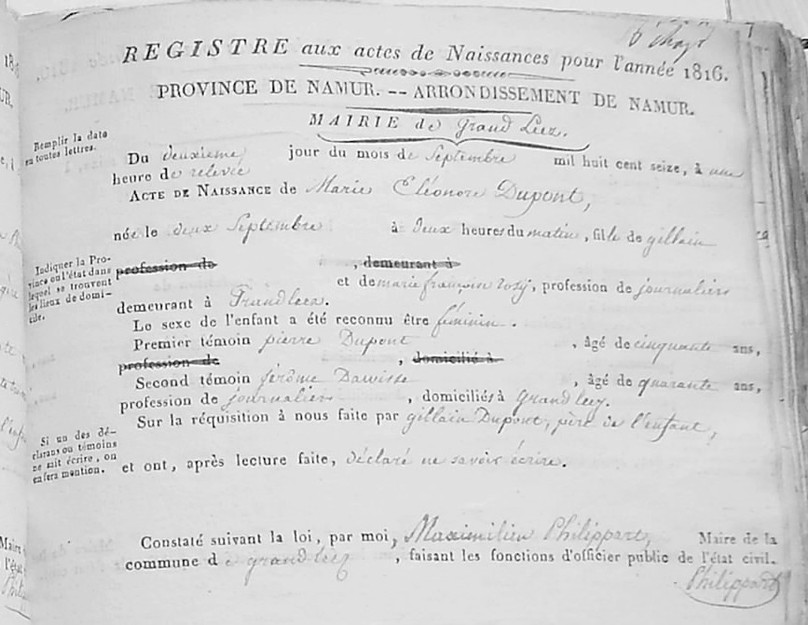 REGISTRE aux actes de Naissances pour l'année 1816.
PROVINCE DE NAMUR. -- ARRONDISSEMENT DE NAMUR.
MAIRIE de Grand Leez.
Remplir la date en toutes lettres.
Du deuxieme jour du mois de Septembre mil huit cent seize, à une
heure de relevée
ACTE DE NAISSANCE de Marie Eléonore Dupont,
née le deux Septembre à deux heures du matin, fille de gillain
Indiquer la Province ou l'état dans lequel se trouvent les lieux de domicile.
profession de , demeurant à
et de marie françoise rosy, profession de journaliers
demeurant à Grandleez.
Le sexe de l'enfant a été reconnu être féminin.
Premier témoin pierre Dupont , âgé de cinquante ans,
profession de , domicilié à
Second témoin jérôme Dawisse , âgé de quarante ans,
profession de journaliers , domiciliés à grandleez.
Sur la réquisition à nous faite par gillain Dupont, père de l'enfant,
Si un des déclarans ou témoins ne sait écrire, on en fera mention.
et ont, après lecture faite, déclaré ne savoir écrire.
Constaté suivant la loi, par moi, Maximilien Philippart, Maire de la
commune de grandleez , faisant les fonctions d'officier public de l'état civil.
Philippart